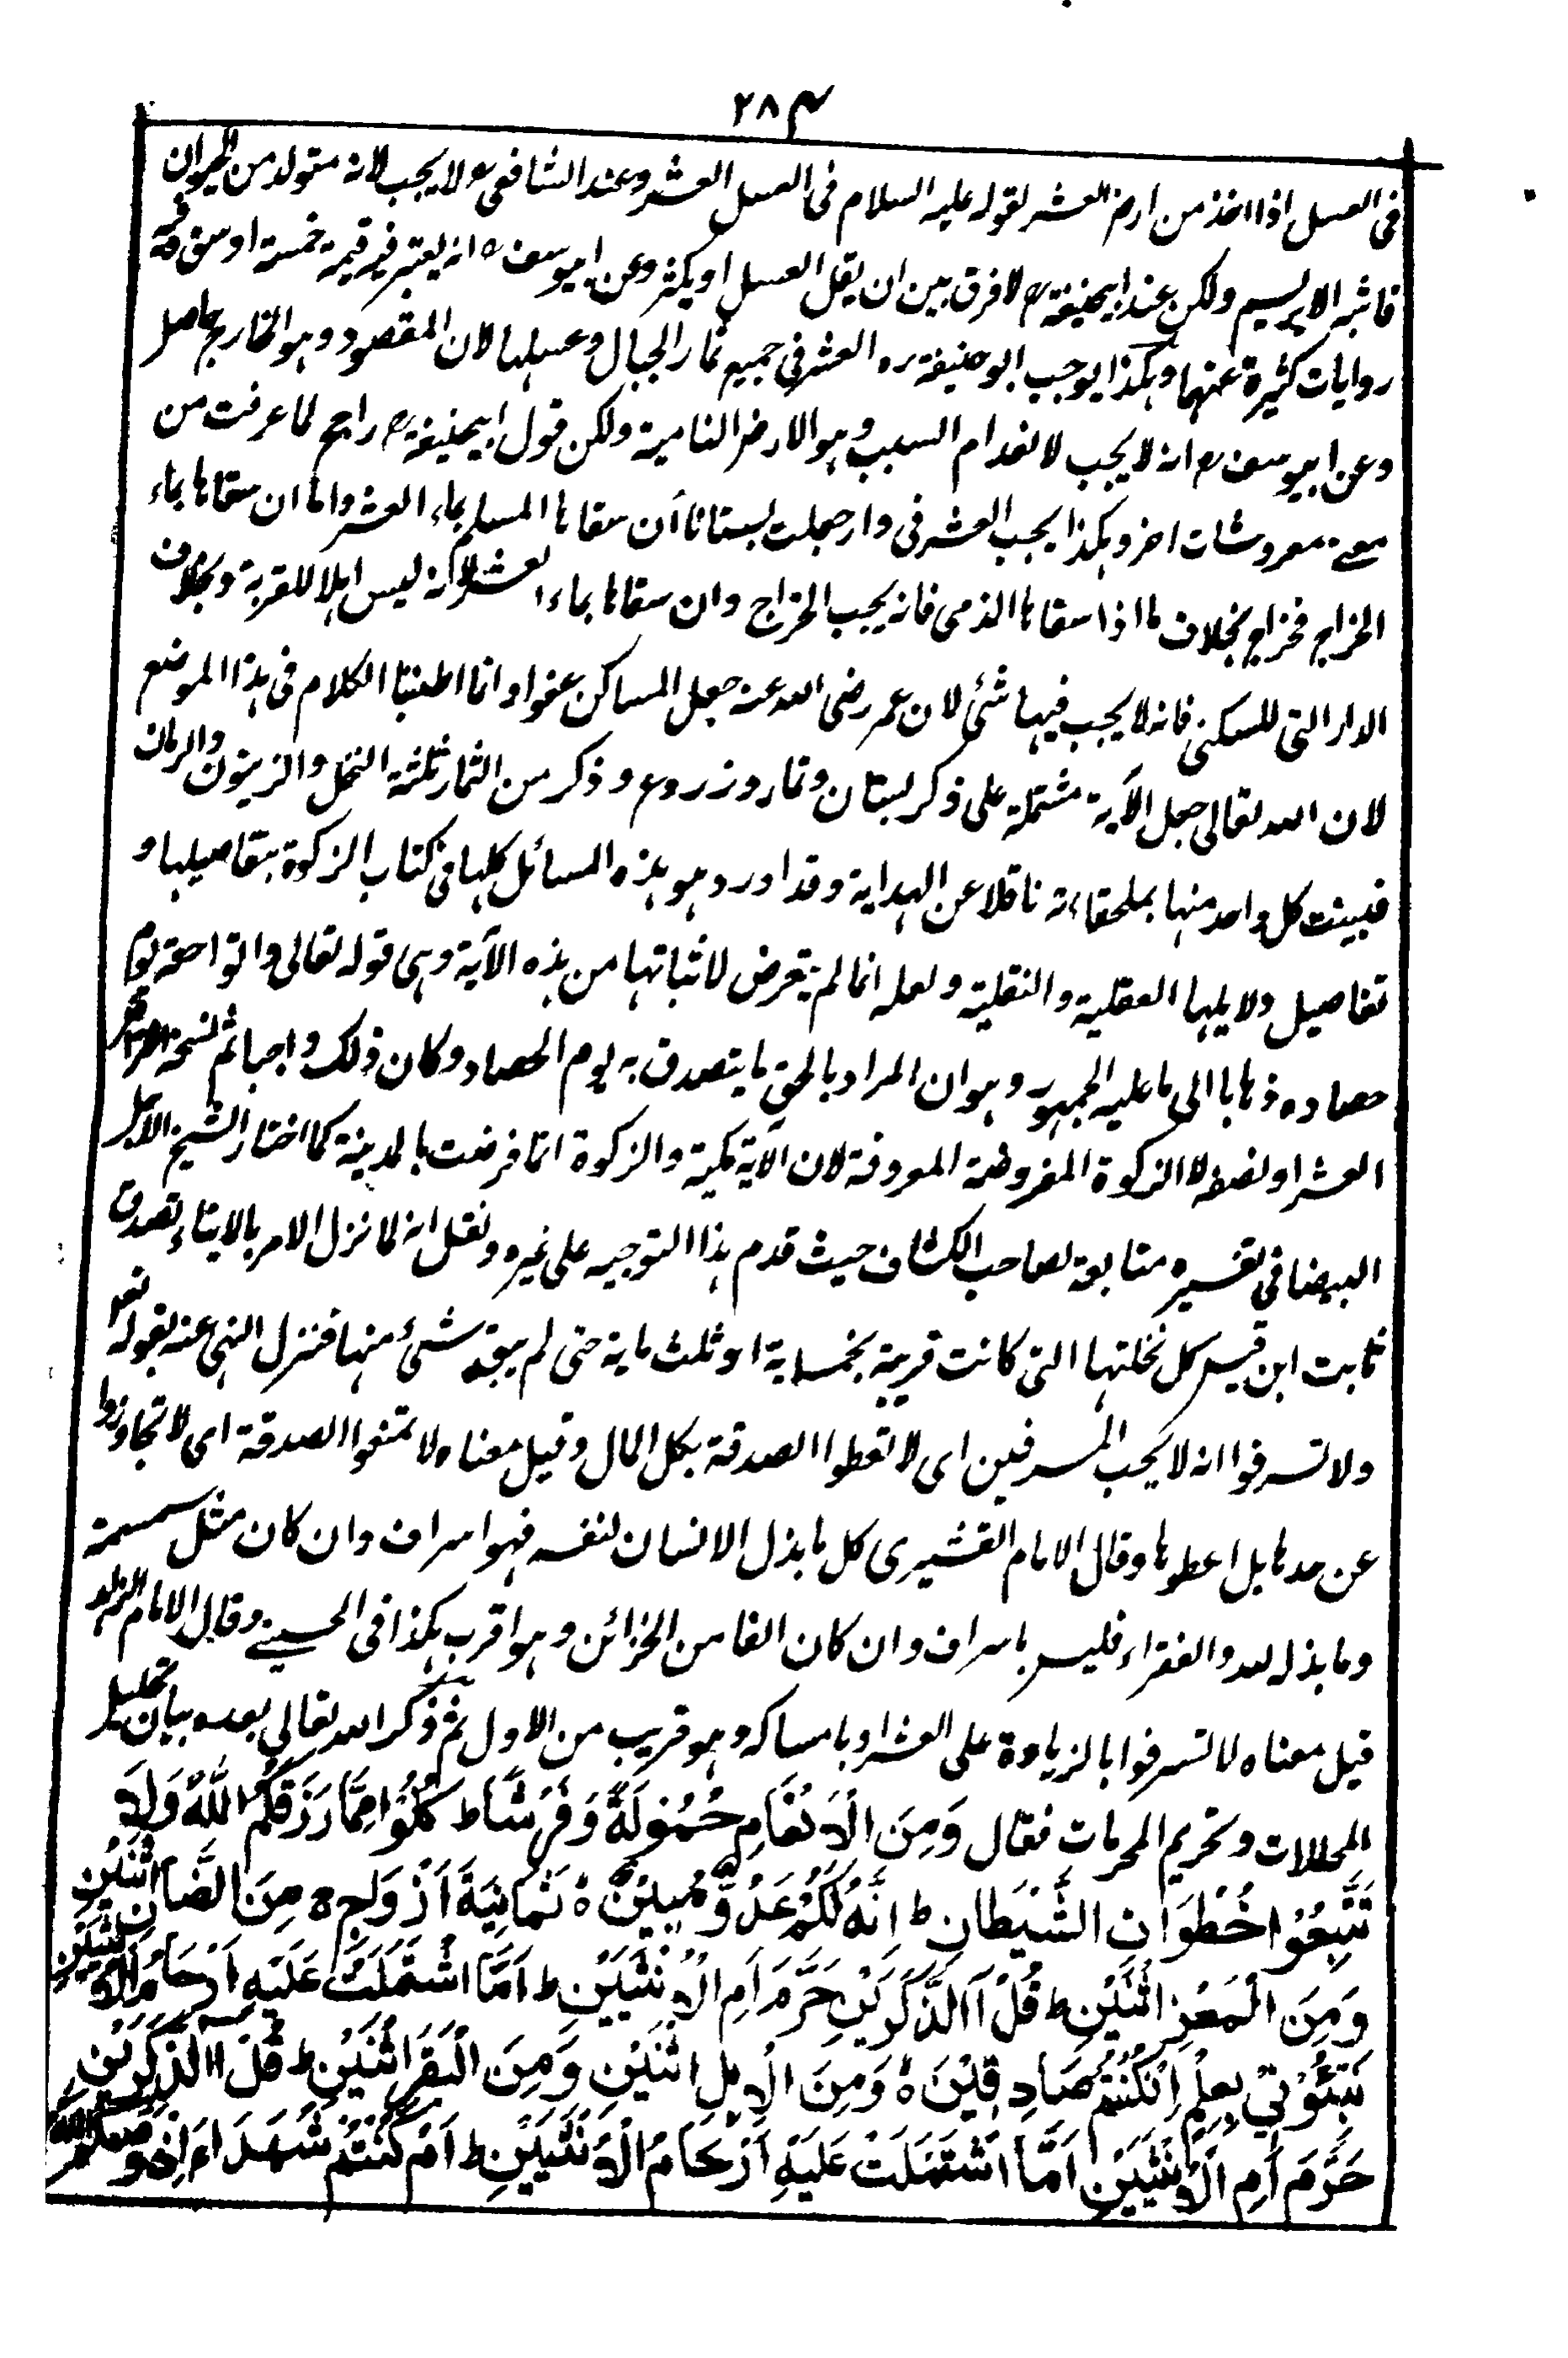 ٣٨٤
فى العسل اذا اخذ من ارض العشر لقوله عليه السلام فى العسل العشر وعند الشافعى رح لا يجب لانه متولد من الحيوان
فاشبه الابريسم ولكن عند ابيحنيفة رح لا فرق بين ان يقل العسل او يكثر وعن ابيوسف ره انه يعتبر فيه قيمة خمسة اوسق وفيه
روايات كثيرة عنهما وهكذا يوجب ابو حنيفة ره العشر فى جميع ثمار الجبال وعسلها لان المقصود وهو الخارج حاصل
وعن ابيوسف رح انه لا يجب لانعدام السبب وهو الارض النامية ولكن قول ابيحنيفة رح راجح لما عرفت من
معنى معروشات اخر وهكذا يجب العشر فى دار جعلت بستانا ان سقاها المسلم بماء العشر واما ان سقاها بماء
الخراج فخراج بخلاف ما اذا سقاها الذمى فانه يجب الخراج وان سقاها بماء العشر لانه ليس اهلا للقربة وبخلاف
الدار التى للسكنى فانه لا يجب فيها شئ لان عمر رضى الله عنه جعل المساكن عفوا وانما اطنبنا الكلام فى هذا الموضع
لان الله تعالى جعل الآية مشتملة على ذكر بستان وثمار وزروع وذكر من الثمار ثلثة النخل والزيتون والرمان
فبينت كل واحد منها بملحقاته ناقلا عن الهداية وقد اورد هو هذه المسائل كلها فى كتاب الزكوة بتفاصيلها و
تفاصيل دلايلها العقلية والنقلية ولعله انما لم يتعرض لاثباتها من هذه الآية وهى قوله تعالى واتوا حقه يوم
حصاده ذهابا الى ما عليه الجمهور وهو ان المراد بالحق ما يتصدق به يوم الحصاد وكان ذلك واجبا ثم نسخ
العشر او نصفه لا الزكوة المفروضة المعروفة لان الآية مكية والزكوة انما فرضت بالمدينة كما اختار الشيخ الاجل
البيضا فى تفسيره متابعة لصاحب الكشاف حيث قدم هذا التوجيه على غيره ونقل انه لما نزل الامر بالايتاء تصدق
ثابت ابن قيس كل نخلتها التى كانت قريبة بخمسماية او ثلث ماية حتى لم يبق شئ منها فنزل النهى عنه بقوله تعالى
ولا تسرفوا انه لا يحب المسرفين اى لا تعطوا الصدقة بكل المال وقيل معناه لا تمنعوا الصدقة اى لا تجاوزوا
عن حدها بل اعطوها وقال الامام القشيرى كل ما بذل الانسان لنفسه فهو اسراف وان كان مثل سمسمة
وما بذله لله والفقراء فليس باسراف وان كان الفا من الخزائن وهو اقرب هكذا فى الحسينى وقال الامام الزاهد
قيل معناه لا تسرفوا بالزيادة على العشر او بامساكه وهو قريب من الاول ثم ذكر الله تعالى بعده بيان تحليل
المحللات وتحريم المحرمات فقال وَمِنَ الْاَنْعَامِ حَمُوْلَةً وَّفَرْشًا ط كُلُوْا مِمَّا رَزَقَكُمُ اللّٰهُ وَلَا
تَتَّبِعُوْا خُطُوَاتِ الشَّيْطَانِ ط اِنَّهُ لَكُمْ عَدُوٌّ مُّبِيْنٌ ه ثَمَانِيَةَ اَزْوَاجٍ ج مِنَ الضَّاْنِ اثْنَيْنِ
وَمِنَ الْمَعْزِ اثْنَيْنِ ط قُلْ آالذَّكَرَيْنِ حَرَّمَ اَمِ الْاُنْثَيَيْنِ ط اَمَّا اشْتَمَلَتْ عَلَيْهِ اَرْحَامُ الْاُنْثَيَيْنِ
نَبِّئُوْنِيْ بِعِلْمٍ اِنْ كُنْتُمْ صَادِقِيْنَ ه وَمِنَ الْاِبِلِ اثْنَيْنِ وَمِنَ الْبَقَرِ اثْنَيْنِ ط قُلْ آالذَّكَرَيْنِ
حَرَّمَ اَمِ الْاُنْثَيَيْنِ اَمَّا اشْتَمَلَتْ عَلَيْهِ اَرْحَامُ الْاُنْثَيَيْنِ ط اَمْ كُنْتُمْ شُهَدَآءَ اِذْ وَصّٰكُمُ اللّٰهُ